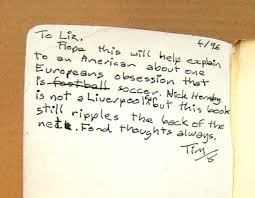 To Liz, 4/96
Hope this will help explain
to an American about one
Europeans obsession that
is football soccer. Nick Hornby
is not a Liverpoolian but this book
still ripples the back of the
nets. Fond thoughts always,
Tim/s